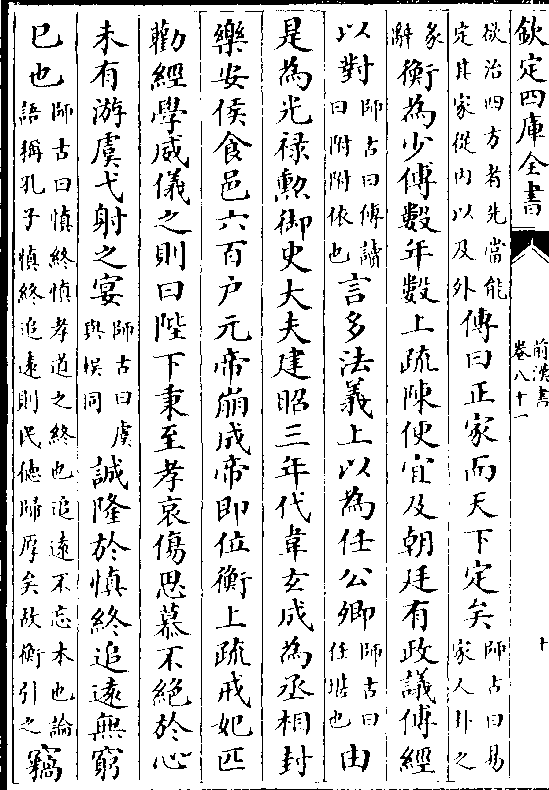 欽定四庫全書
前漢書
卷八十一
十
欲治四方者先當能
定其家從内以及外
傳曰正家而天下定矣
師古曰易
家人卦之
彖
辭
衡為少傅數年數上疏陳便宜及朝廷有政議傅經
以對
師古曰傅讀
曰附附依也
言多法義上以為任公卿
師古曰
任堪也
由
是為光禄勲御史大夫建昭三年代韋玄成為丞相封
樂安侯食邑六百户元帝崩成帝即位衡上疏戒妃匹
勸經學威儀之則曰陛下秉至孝哀傷思慕不絶於心
未有游虞弋射之宴
師古曰虞
與娛同
誠隆於慎終追遠無窮
已也
師古曰慎終慎孝道之終也追遠不忘本也論
語稱孔子慎終追遠則民德歸厚矣故衡引之
竊